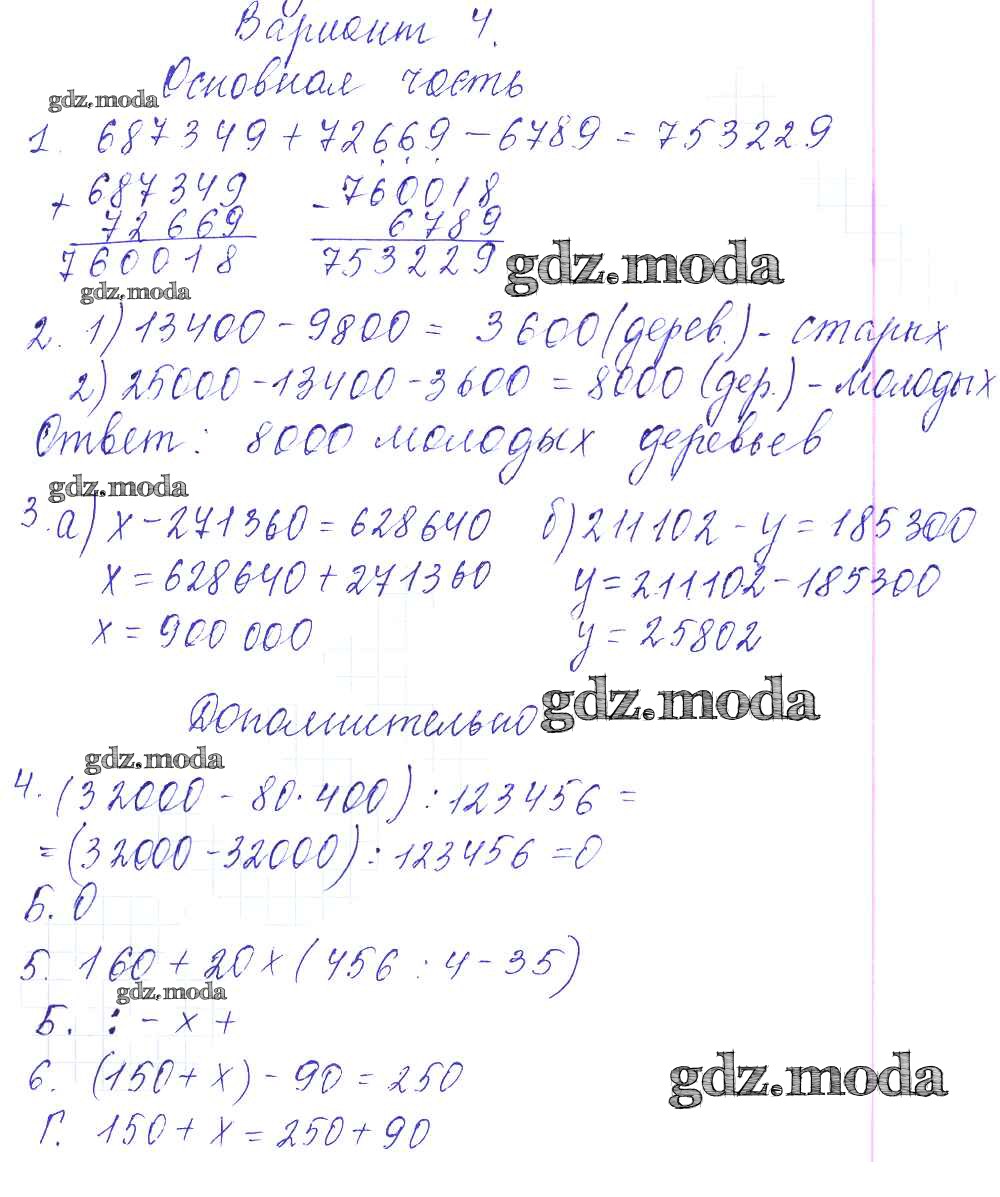 Вариант 4.
Основная часть
gdz.moda
1. 687349 + 72669 - 6789 = 753229
+ 687349 - 760018
72669 6789
760018 753229
gdz.moda
gdz.moda
2. 1) 13400 - 9800 = 3600 (дерев.) - старых
2) 25000 - 13400 - 3600 = 8000 (дер.) - молодых
Ответ: 8000 молодых деревьев
gdz.moda
3. а) x - 271360 = 628640 б) 211102 - y = 185300
x = 628640 + 271360 y = 211102 - 185300
x = 900 000 y = 25802
Дополнительно
gdz.moda
gdz.moda
4. (32000 - 80·400) : 123456 =
= (32000 - 32000) : 123456 = 0
Б. 0
5. 160 + 20 x (456 : 4 - 35)
gdz.moda
Б. : - x +
6. (150 + x) - 90 = 250
gdz.moda
Г. 150 + x = 250 + 90